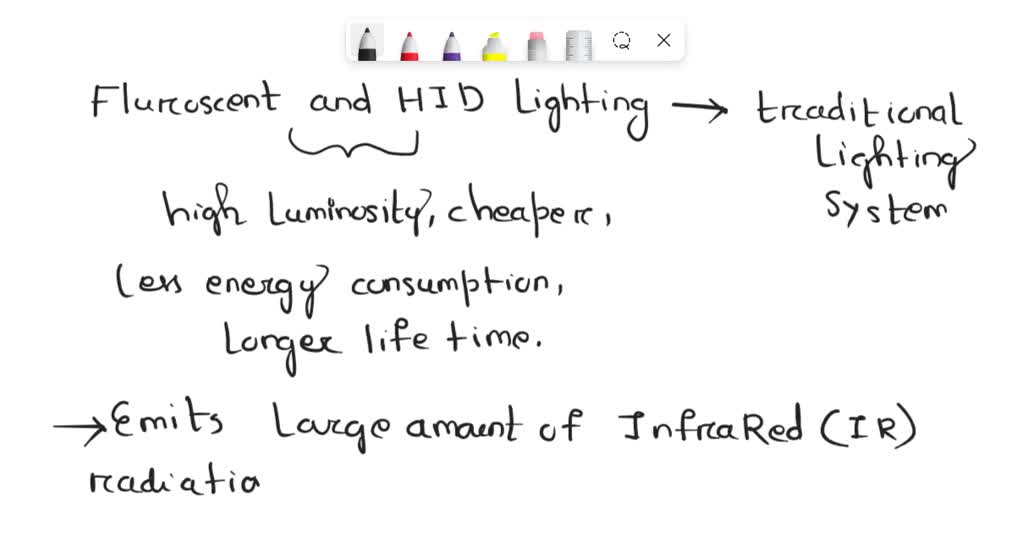 Flurcoscent and HID Lighting → traditional
Lighting
System
high Luminosity, cheaper,
Less energy consumption,
Longer life time.
→ Emits Large amount of InfraRed (IR)
radiatio